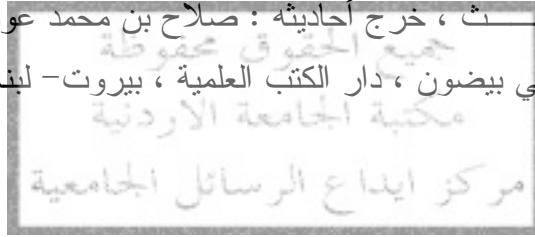 ـث ، خرج أحاديثه : صلاح بن محمد عو
جميع الحقوق محفوظة
ي بيضون ، دار الكتب العلمية ، بيروت – لبنـ
مكتبة الجامعة الاردنية
مركز ايداع الرسائل الجامعية